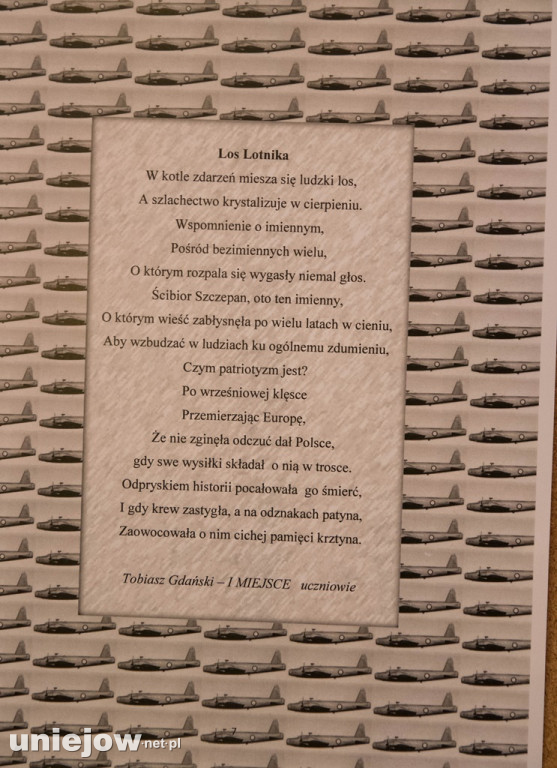 Los Lotnika
W kotle zdarzeń miesza się ludzki los,
A szlachectwo krystalizuje w cierpieniu.
Wspomnienie o imiennym,
Pośród bezimiennych wielu,
O którym rozpala się wygasły niemal głos.
Ścibior Szczepan, oto ten imienny,
O którym wieść zabłysnęła po wielu latach w cieniu,
Aby wzbudzać w ludziach ku ogólnemu zdumieniu,
Czym patriotyzm jest?
Po wrześniowej klęsce
Przemierzając Europę,
Że nie zginęła odczuć dał Polsce,
gdy swe wysiłki składał o nią w trosce.
Odpryskiem historii pocałowała go śmierć,
I gdy krew zastygła, a na odznakach patyna,
Zaowocowała o nim cichej pamięci krztyna.
Tobiasz Gdański – I MIEJSCE uczniowie
7
uniejow.net.pl